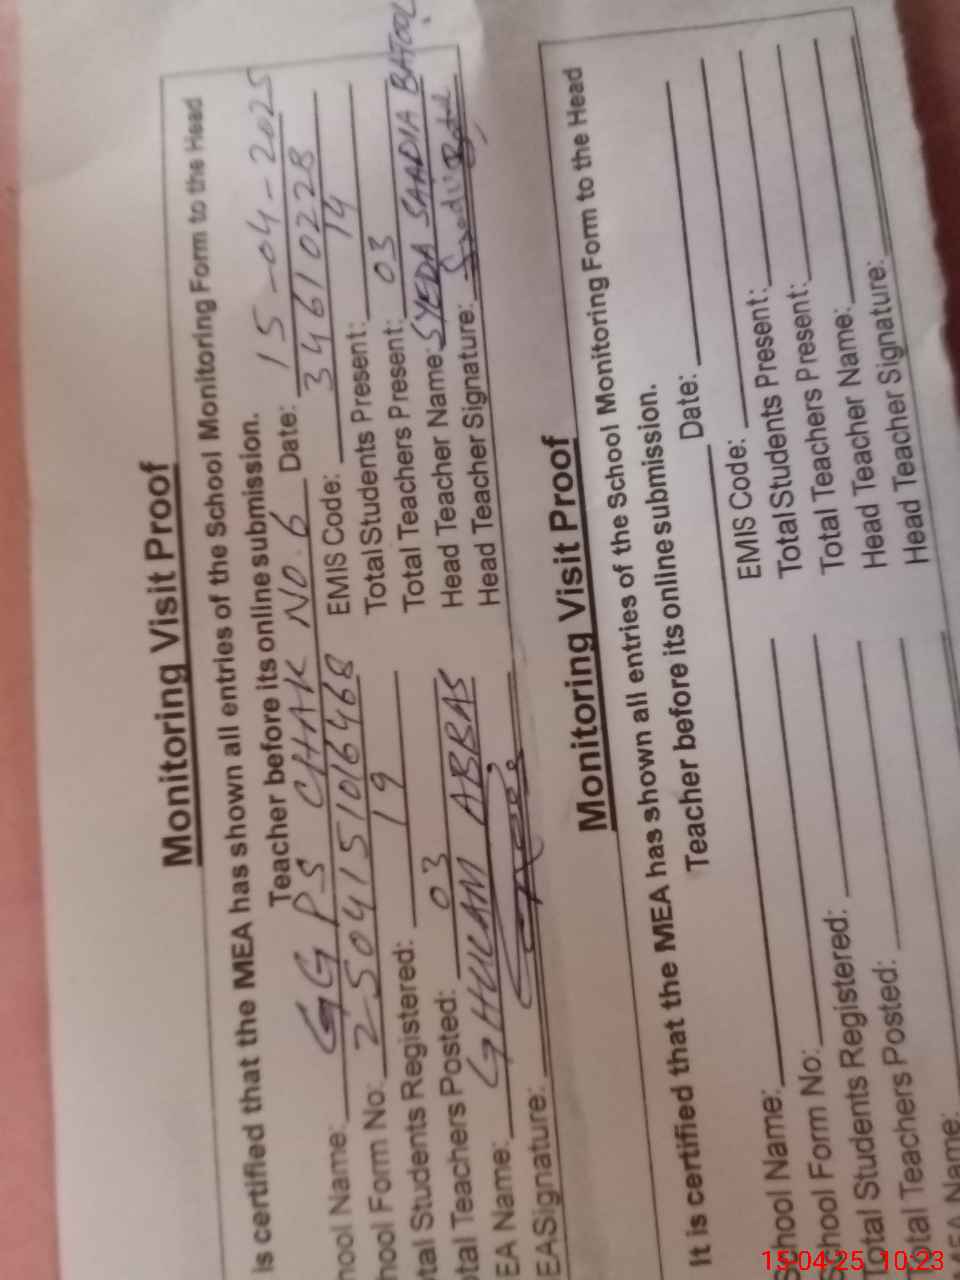 Monitoring Visit Proof
is certified that the MEA has shown all entries of the School Monitoring Form to the Head
Teacher before its online submission.
hool Name: GGPS CHAK NO.6 Date: 15-04-2025
hool Form No: 250415106468 EMIS Code: 34610228
tal Students Registered: 19 Total Students Present: 14
otal Teachers Posted: 03 Total Teachers Present: 03
EA Name: GHULAM ABBAS Head Teacher Name: SYEDA SAADIA BATOOL
EA Signature: Head Teacher Signature:
Monitoring Visit Proof
It is certified that the MEA has shown all entries of the School Monitoring Form to the Head
Teacher before its online submission.
Date:
School Name: EMIS Code:
School Form No: Total Students Present:
Total Students Registered: Total Teachers Present:
otal Teachers Posted: Head Teacher Name:
MEA Name: Head Teacher Signature:
15-04-25 10:23